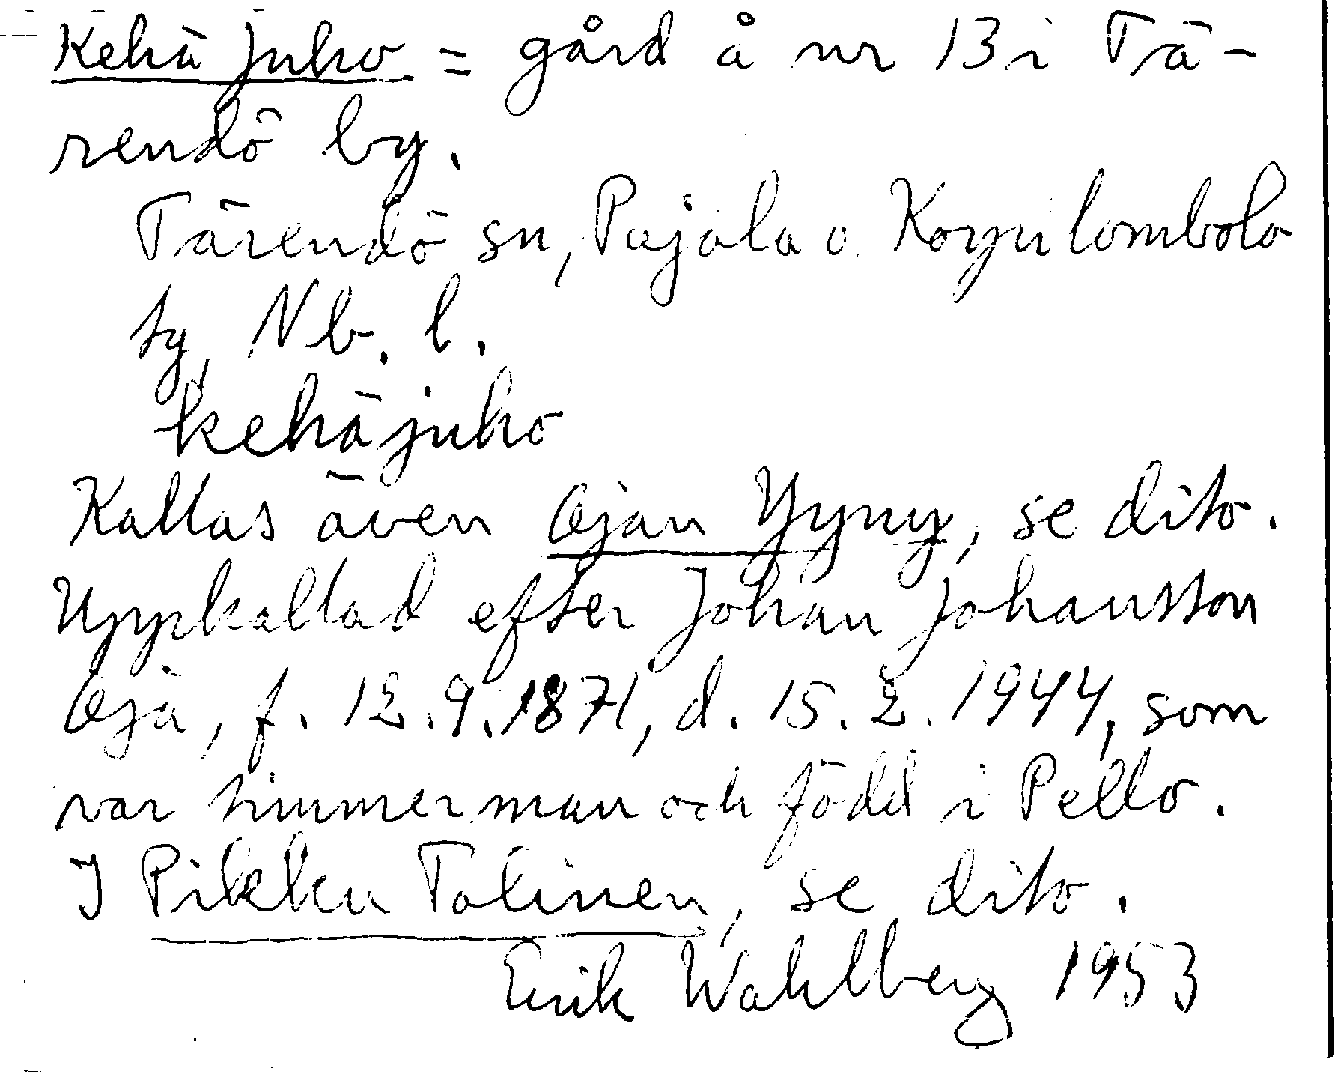 Kehä Juho = gård å nr 13 i Tä-
rendö by.
Tärendö sn, Pajala o. Korpilombolo
tg, Nb. l.
kehäjuho
Kallas även Ojan Yyny, se dito.
Uppkallad efter Johan Johansson
Oja, f. 12.9.1871, d. 15.2.1944, som
var timmerman och född i Pello.
I Pikku Talinen, se dito.
Erik Wahlberg 1953